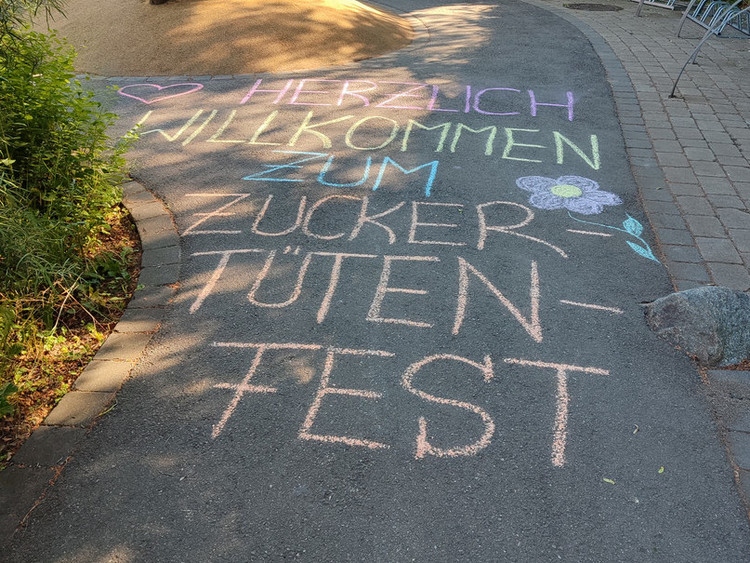 HERZLICH
WILLKOMMEN
ZUM
ZUCKER-
TÜTEN-
FEST